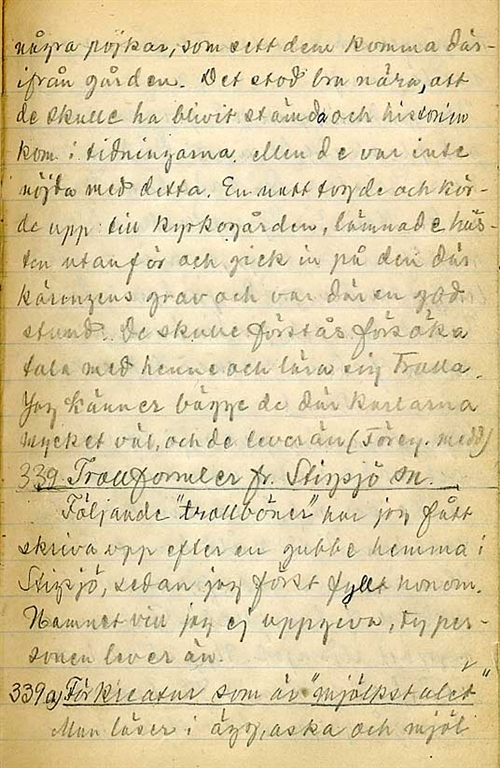 några pojkar, som sett dem komma där-
ifrån gården. Det stod bra nära, att
de skulle ha blivit stämda och historien
kom i tidningarna. Men de var inte
nöjda med detta. En natt tog de och kör-
de upp till kyrkogården, lämnade häs-
ten utanför och gick in på den där
käringens grav och var där en god
stund. De skulle förstås försöka
tala med henne och lära sig trolla.
Jag känner bägge de där karlarna
mycket väl, och de lever än (Föreg. medd)
339 Trollformler fr. Stigsjö sn.
Följande "trollböner" har jag fått
skriva upp efter en gubbe hemma i
Stigsjö, sedan jag först fyllt honom.
Namnet vill jag ej uppgiva, ty per-
sonen lever än.
339 a) För kreatur som är "mjölkstulet"
Man läser i ägg, aska och mjöl